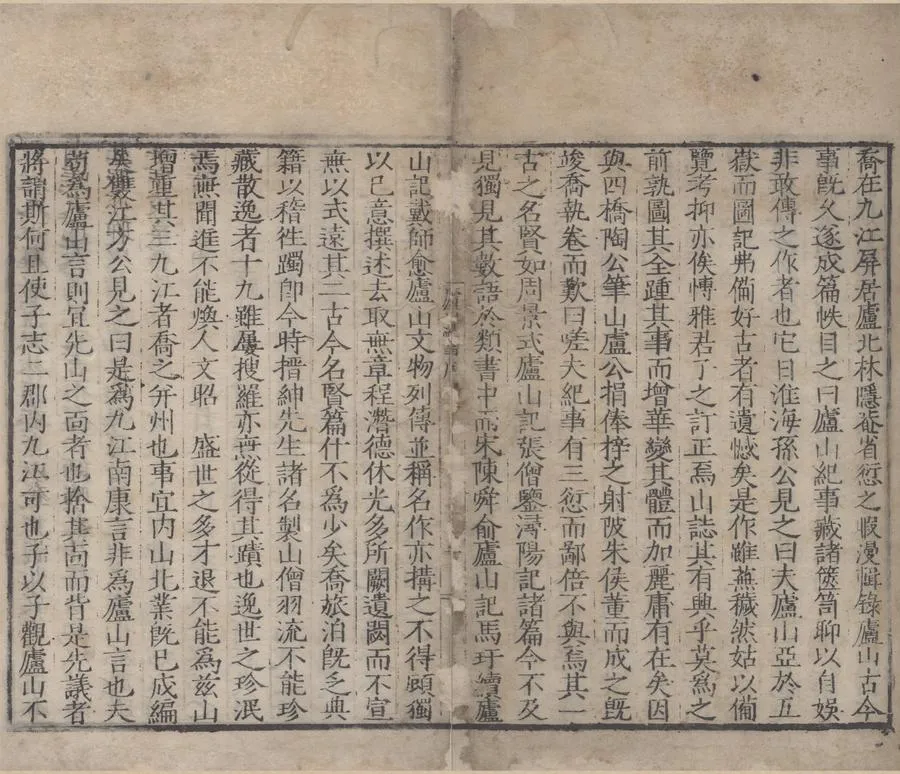 喬在九江屏居廬北林隱菴省愆之暇漫輯錄廬山古今
事旣久遂成篇帙目之曰廬山紀事藏諸篋笥聊以自娛
非敢傳之作者也它日淮海孫公見之曰夫廬山亞於五
嶽而圖記弗備好古者有遺憾矣是作雖蕪穢然姑以備
覽考抑亦俟愽雅君子之訂正焉山誌其有興乎莫為之
前孰圖其全踵其事而增華變其體而加麗庸有在矣因
與四橋陶公筆山盧公捐俸梓之射陂朱侯董而成之旣
竣喬執卷而歎曰嗟夫紀事有三愆而鄙倍不與焉其一
古之名賢如周景式廬山記張僧鑒潯陽記諸篇今不及
見獨見其數語於類書中而宋陳舜俞廬山記馬玗續廬
山記戴師愈廬山文物列傳並稱名作亦搆之不得顓獨
以己意撰述去取無章程潛德休光多所闕遺闕而不宣
無以式遠其二古今名賢篇什不為少矣喬旅泊旣乏典
籍以稽徃躅卽今時搢紳先生諸名製山僧羽流不能珍
藏散逸者十九雖屢搜羅亦無從得其蹟也逸世之珍泯
焉無聞進不能煥人文昭 盛世之多才退不能為茲山
增重其三九江者喬之幷州也事宜內山北業旣已成編
江方公見之曰是為九江南康言非為廬山言也夫
苟為廬山言則宜先山之面者也捨其面而背是先議者
將謂斯何且使子志二郡內九江可也子以子觀廬山不